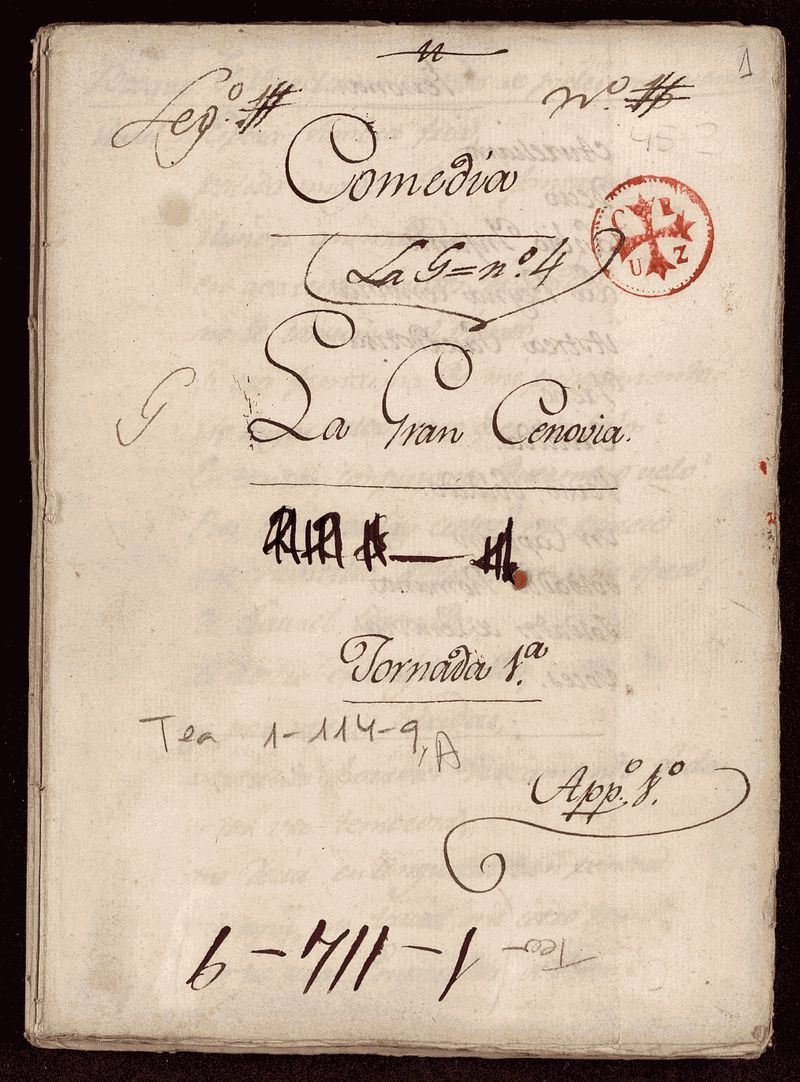 1
Leg.º
nº
45-2
Comedia
La G = nº. 4
C R
U Z
G
La Gran Cenovia.
Jornada 1.ª
Tea 1-114-9, A
App.º 1.º
Tea 1-114-9